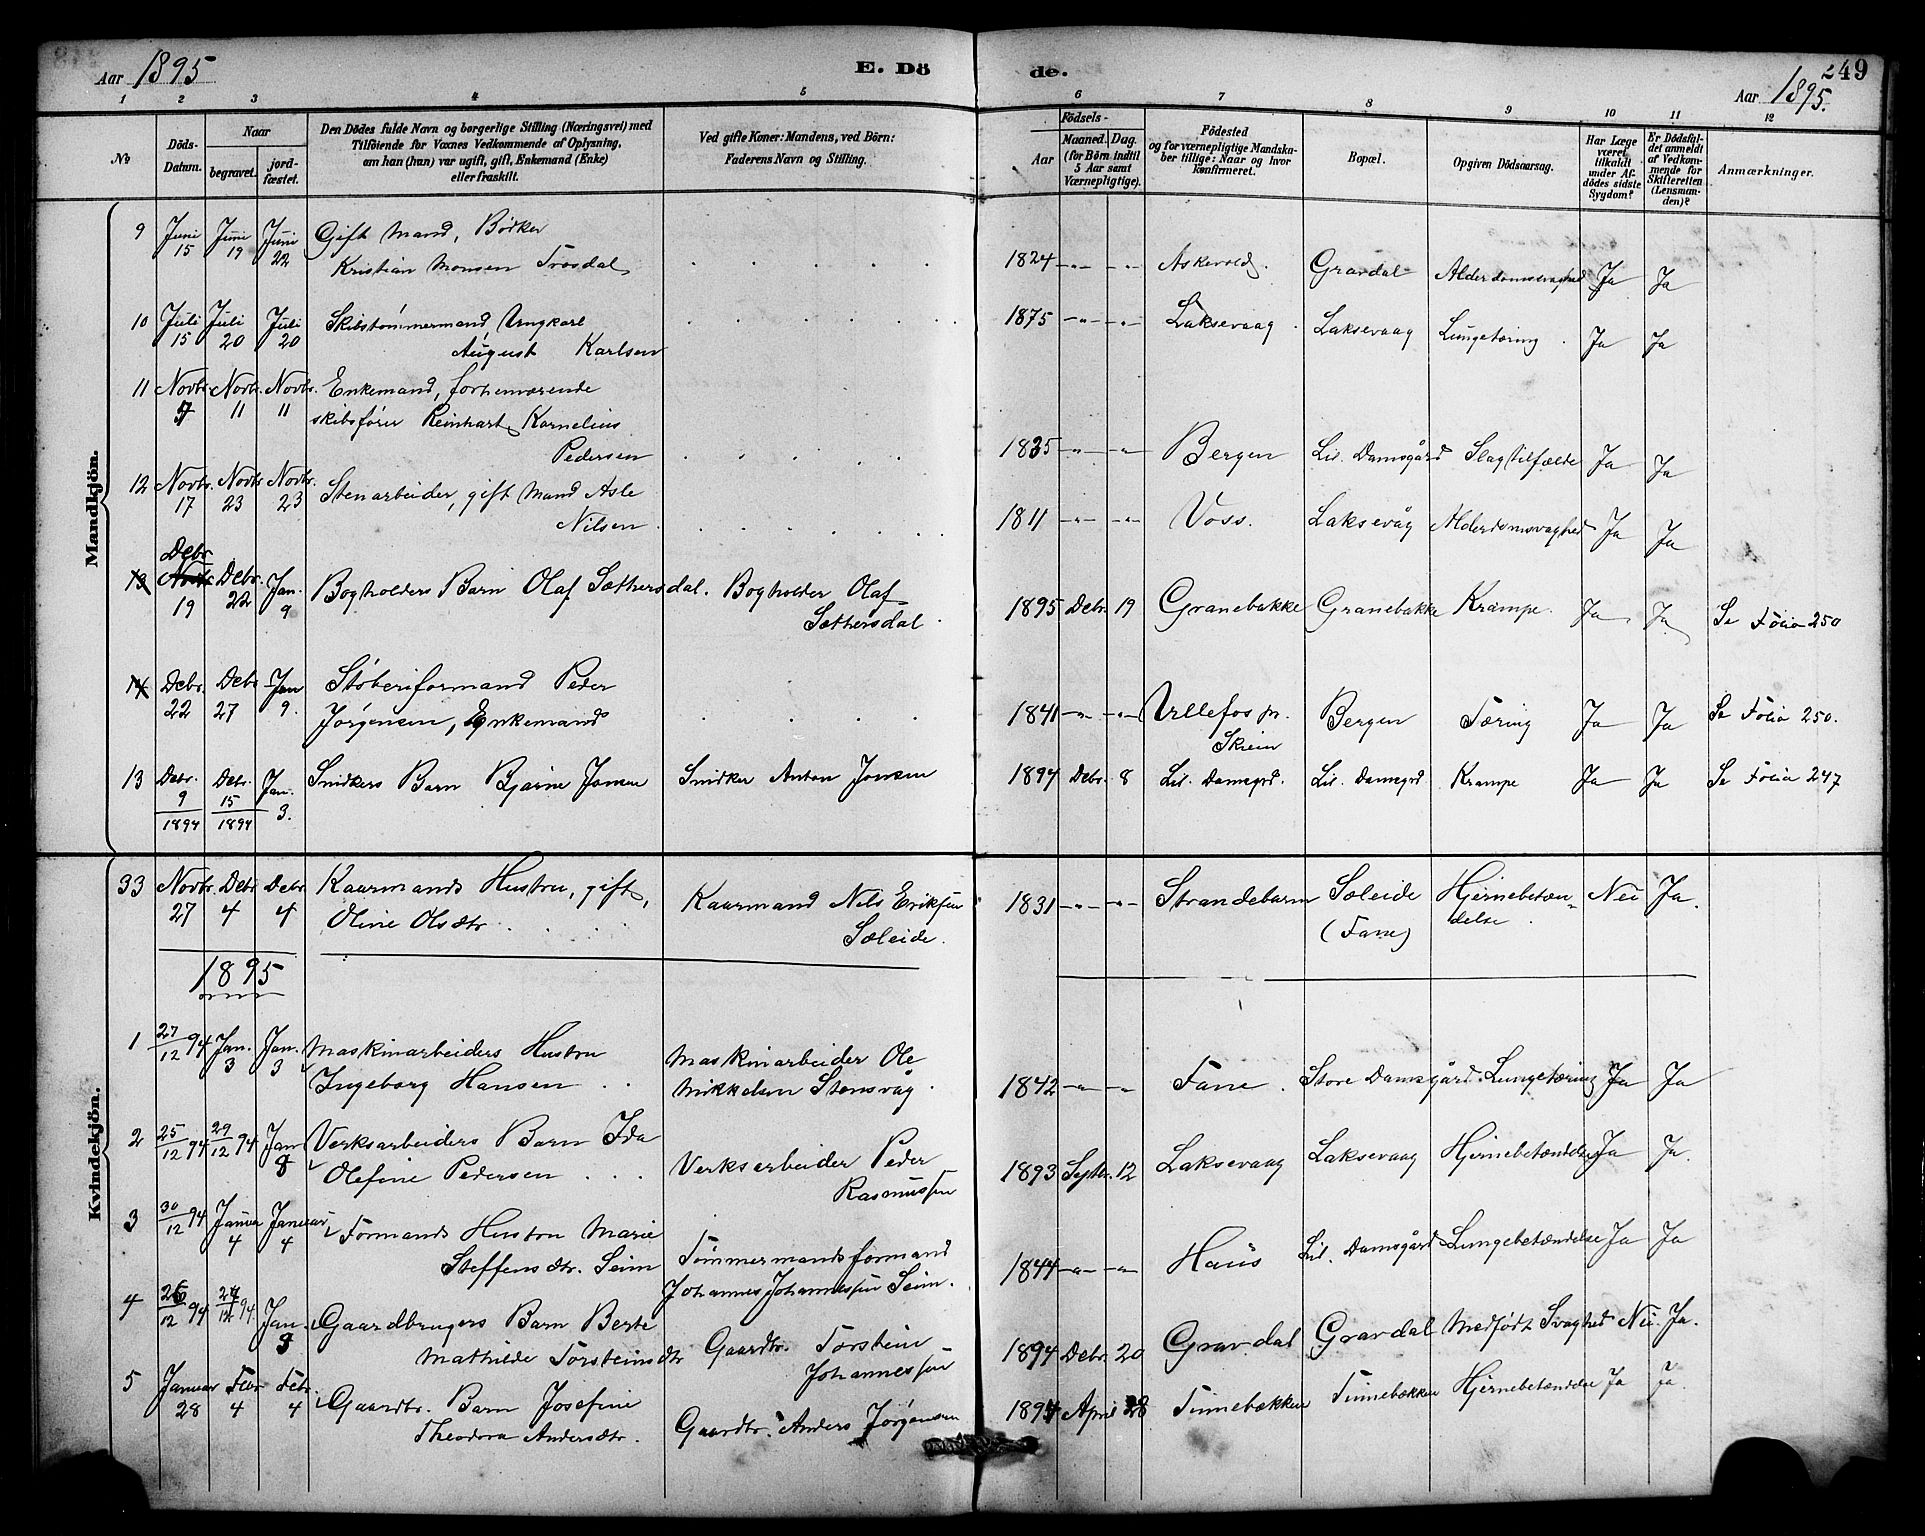 Aar 1895
E. Dö
de.
249
Aar 1895.
1 2 3 4 5 6 7 8 9 10 11 12
No
Döds-
Datum.
Naar
begravet.
jord-
fæstet.
Den Dödes fulde Navn og borgerlige Stilling (Næringsvei) med
Tilföiende for Voxnes Vedkommende af Oplysning,
om han (hun) var ugift, gift, Enkemand (Enke)
eller fraskilt.
Ved gifte Koner: Mandens, ved Börn:
Faderens Navn og Stilling.
Födsels-
Aar
Maaned. Dag.
(for Börn indtil
5 Aar samt
Værnepligtige).
Födested
og for værnepligtige Mandska-
ber tillige: Naar og hvor
konfirmeret.
Bopæl.
Opgiven Dödsaarsag.
Har Læge
været
tilkaldt
under Af-
dödes sidste
Sygdom?
Er Dödsfal-
det anmeldt
af Vedkom-
mende for
Skifteretten
(Lensman-
den)?
Anmærkninger.
Mandkjön.
9 Juni 15 Juni 19 Juni 22 Gift Mand, Bødker
Kristian Monsen Trosdal 1824 -"- -"- Askevold. Gravdal Alderdomssvaghed Ja Ja
10 Juli 15 Juli 20 Juli 20 Skibstømmermand, Ungkarl
August Karlsen 1875 -"- -"- Laksevaag Laksevaag Lungetæring Ja Ja
11 Novbr. 7 Novbr. 11 Novbr. 11 Enkemand, forhenværende
skibsfører Reinhart Kornelius
Pedersen 1835 -"- -"- Bergen Lil. Damsgård Slagtilfælde Ja Ja
12 Novbr. 17 Novbr 23 Novbr. 23 Stenarbeider, gift Mand Asle
Nilsen 1811 -"- -"- Voss. Laksevåg Alderdomsvaghed Ja Ja
13 Debr. Novbr. 19 Debr. 22 Jan. 9 Bogholders Barn Olaf Sæthersdal. Bogholder Olaf
Sæthersdal. 1895 Debr. 19 Granebakke Granebakke Krampe. Ja Ja Se Folio 250
14 Debr. 22 Debr 27 Jan 9. Støberiformand Peder
Jørgensen, Enkemand 1841 -"- -"- Ullefos pr.
Skien Bergen Tæring Ja Ja Se Folio 250.
13 Debr. 9 1894 Debr. 15 1894 Jan. 3. Snidkers Barn Bjarne Jonsen Snidker Anton Jonsen 1894 Debr. 8 Lil. Damsgrd. Lil. Damsgrd Krampe Ja Ja Se Folio 247
Kvindekjön.
33 Novbr. 27 Debr 4 Debr 4 Kaarmands Hustru, gift,
Oline Olsdtr. Kaarmand Nils Eriksen
Sæleide. 1831 -"- -"- Strandebarm Sæleide
(Fane) Hjernebetæn-
delse. Nei Ja.
1895
1 27/12 94 Jan. 3 Jan. 3 Maskinarbeiders Hustru
Ingeborg Hansen Maskinarbeider Ole
Mikkelsen Stensvåg 1842 -"- -"- Fane. Store Damsgård. Lungetæring Ja Ja
2 25/12 94 29/12 94 Jan 8 Verksarbeiders Barn Ida
Olefine Pedersen Verksarbeider Peder
Rasmussen 1893 Septbr. 12 Laksevaag Laksevaag Hjernebetændelse Ja Ja.
3 30/12 94 Januar 4 Januar 4 Formands Hustru Marie
Steffensdtr. Seim Tømmermandsformand
Johannes Johannessen Seim. 1844 -"- -"- Haus Lil. Damsgård Lungebetændelse Ja Ja
4 26/12 94 27/12 94 Jan. 9 Gaardbrugers Barn Berte
Mathilde Torsteinsdtr Gaardbr. Torstein
Johannessen 1894 Debr. 20 Gravdal Gravdal Medfødt Svaghed Nei. Ja.
5 Januar 28 Febr 4 Febr. 4 Gaardbr. Barn Josefine
Theodora Andersdtr. Gaardbr. Anders Jørgensen 1894 April 28 Tinnebækken Tinnebækken Hjernebetændelse Ja Ja.